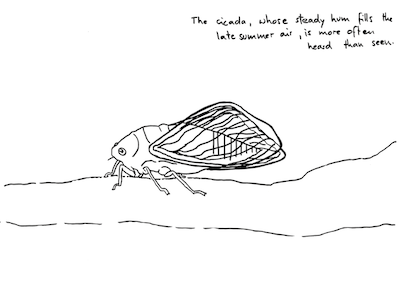 The cicada, whose steady hum fills the
late summer air, is more often
heard than seen.